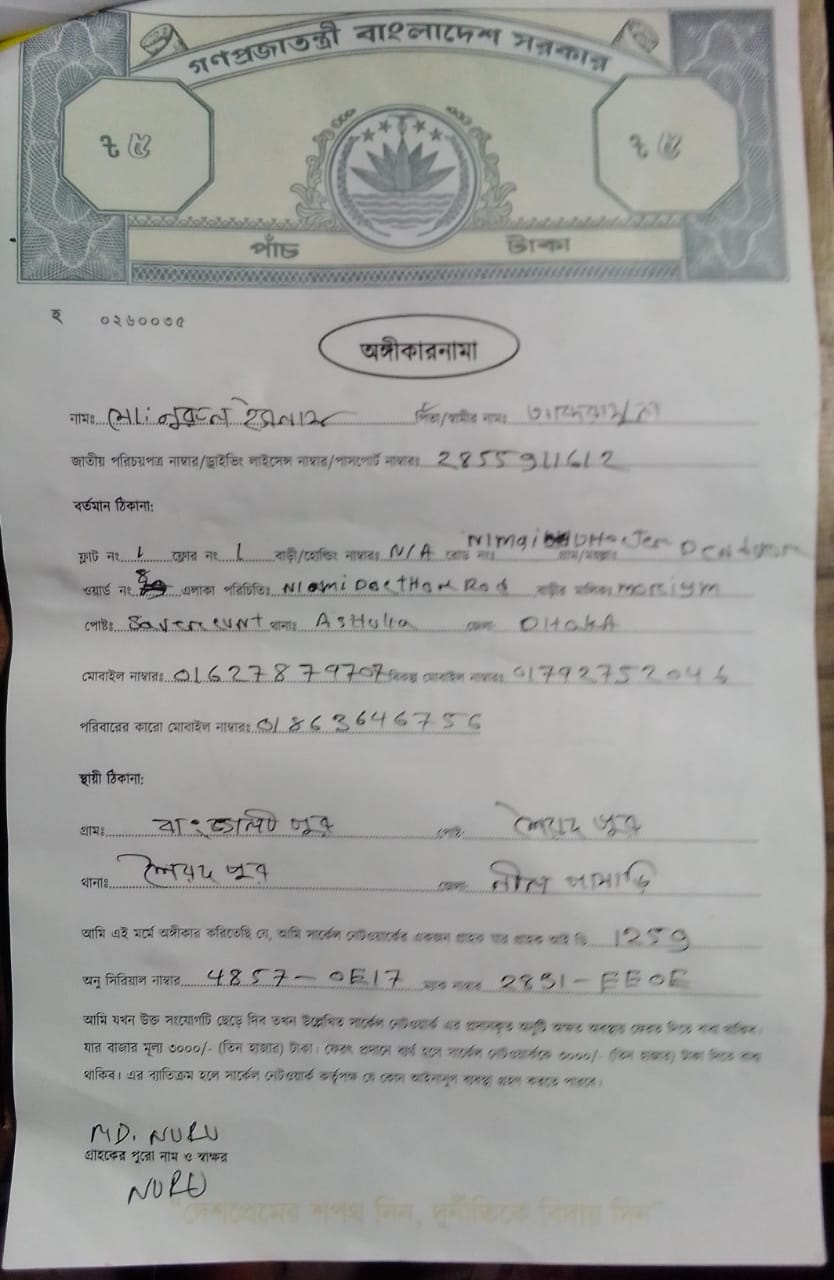 গণপ্রজাতন্ত্রী বাংলাদেশ সরকার
৳ ৫ ৳ ৫
পাঁচ টাকা
হ ০২৬০০৩৫
অঙ্গীকারনামা
নামঃ মোঃ নুরুল ইসলাম পিতা/স্বামীর নামঃ
জাতীয় পরিচয়পত্র নাম্বার/ড্রাইভিং লাইসেন্স নাম্বার/পাসপোর্ট নাম্বারঃ 2855911612
বর্তমান ঠিকানা:
ফ্লাট নং 1 ফ্লোর নং 1 বাড়ী/হোল্ডিং নাম্বারঃ N/A রোড নংঃ গ্রাম/মহল্লাঃ
ওয়ার্ড নং 8 এলাকা পরিচিতিঃ বাড়ীর মালিকঃ
পোষ্টঃ থানাঃ জেলাঃ DHAKA
মোবাইল নাম্বারঃ 01627879707 বিকল্প মোবাইল নাম্বারঃ 01792752046
পরিবারের কারো মোবাইল নাম্বারঃ 01863646756
স্থায়ী ঠিকানা:
গ্রামঃ পোষ্টঃ সৈয়দ পুর
থানাঃ সৈয়দ পুর জেলাঃ
আমি এই মর্মে অঙ্গীকার করিতেছি যে, আমি সার্কেল নেটওয়ার্কের একজন গ্রাহক যার গ্রাহক আই ডি 1259
অনু সিরিয়াল নাম্বার 4857-0E17 ম্যাক নাম্বার
আমি যখন উক্ত সংযোগটি ছেড়ে দিব তখন উল্লেখিত সার্কেল নেটওয়ার্ক এর প্রদানকৃত অনুটি অক্ষত অবস্থায় ফেরত দিতে বাধ্য থাকিব।
যার বাজার মূল্য ৩০০০/- (তিন হাজার) টাকা। ফেরৎ প্রদানে ব্যর্থ হলে সার্কেল নেটওয়ার্ককে ৩০০০/- (তিন হাজার) টাকা দিতে বাধ্য
থাকিব। এর ব্যতিক্রম হলে সার্কেল নেটওয়ার্ক কর্তৃপক্ষ যে কোন আইনানুগ ব্যবস্থা গ্রহণ করতে পারবে।
MD. NURU
গ্রাহকের পুরো নাম ও স্বাক্ষর
NURU
"দেশপ্রেমের শপথ নিন, দুর্নীতিকে বিদায় দিন"